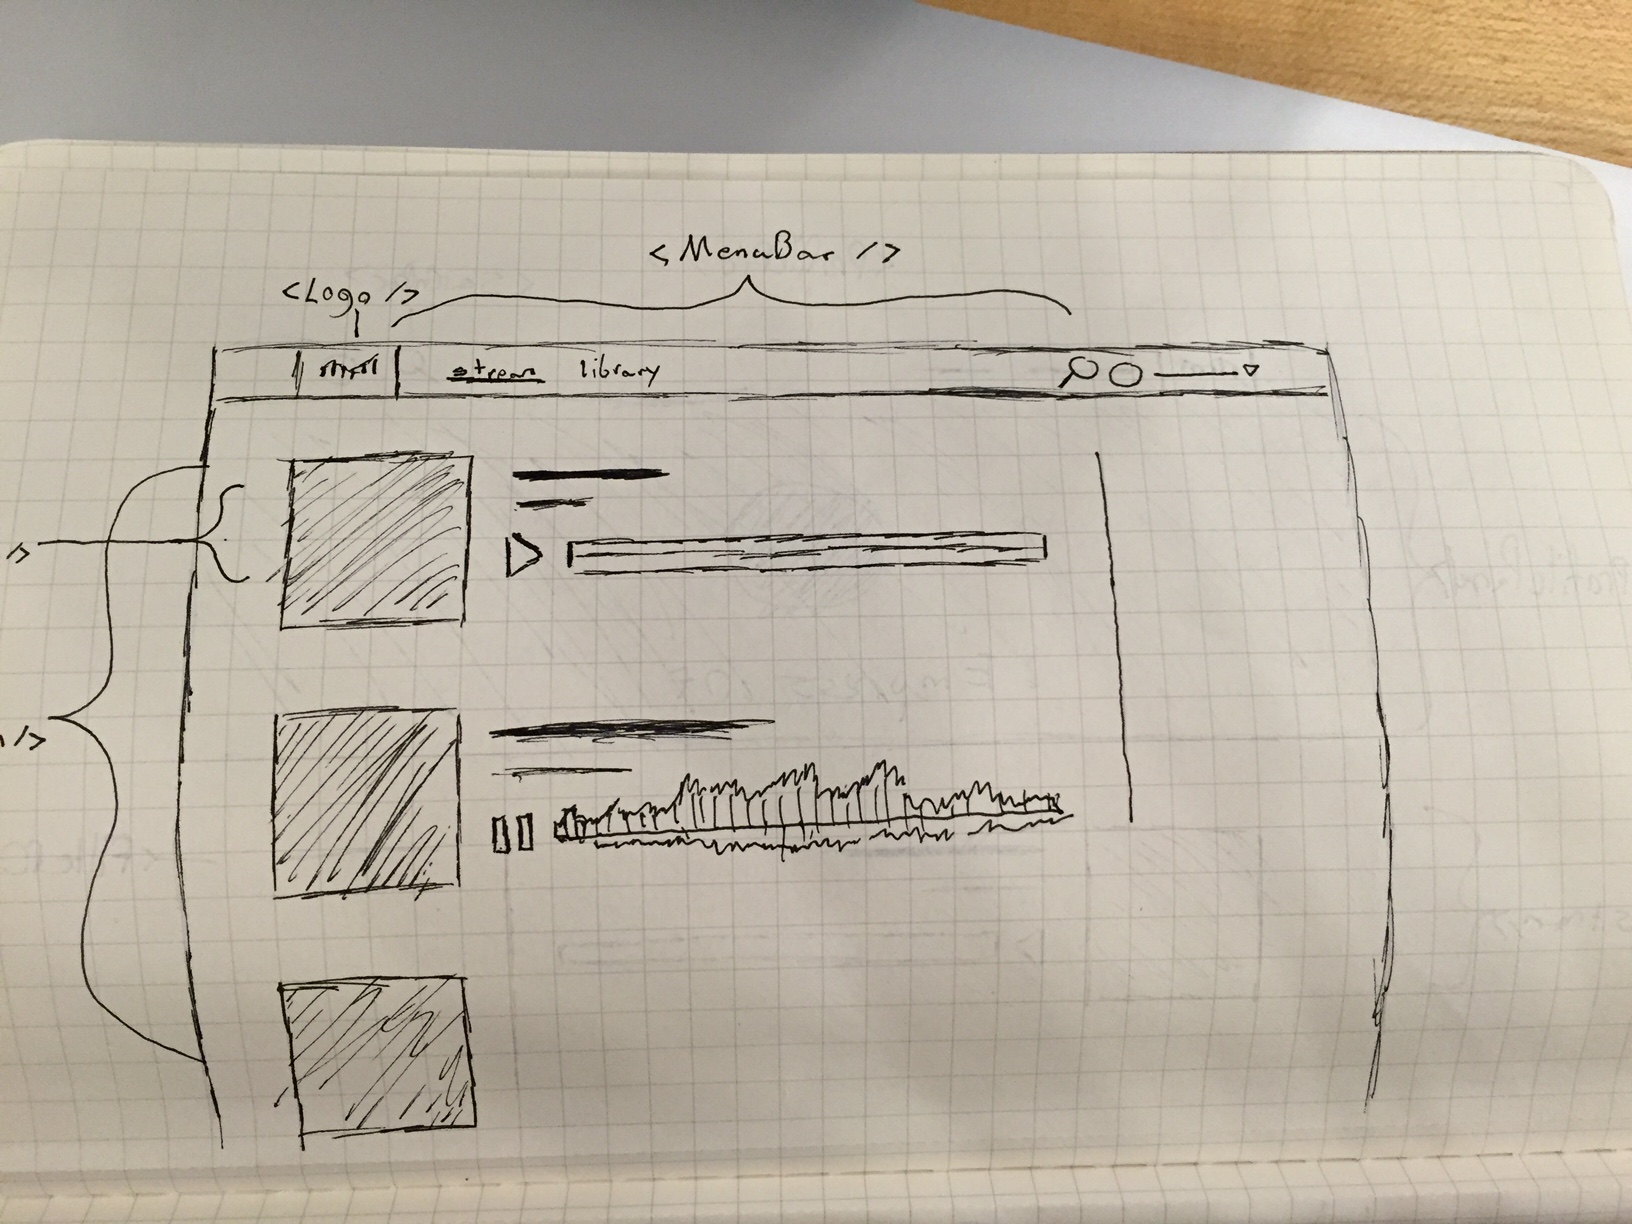 <MenuBar />
<Logo />
stream library
/>
/>